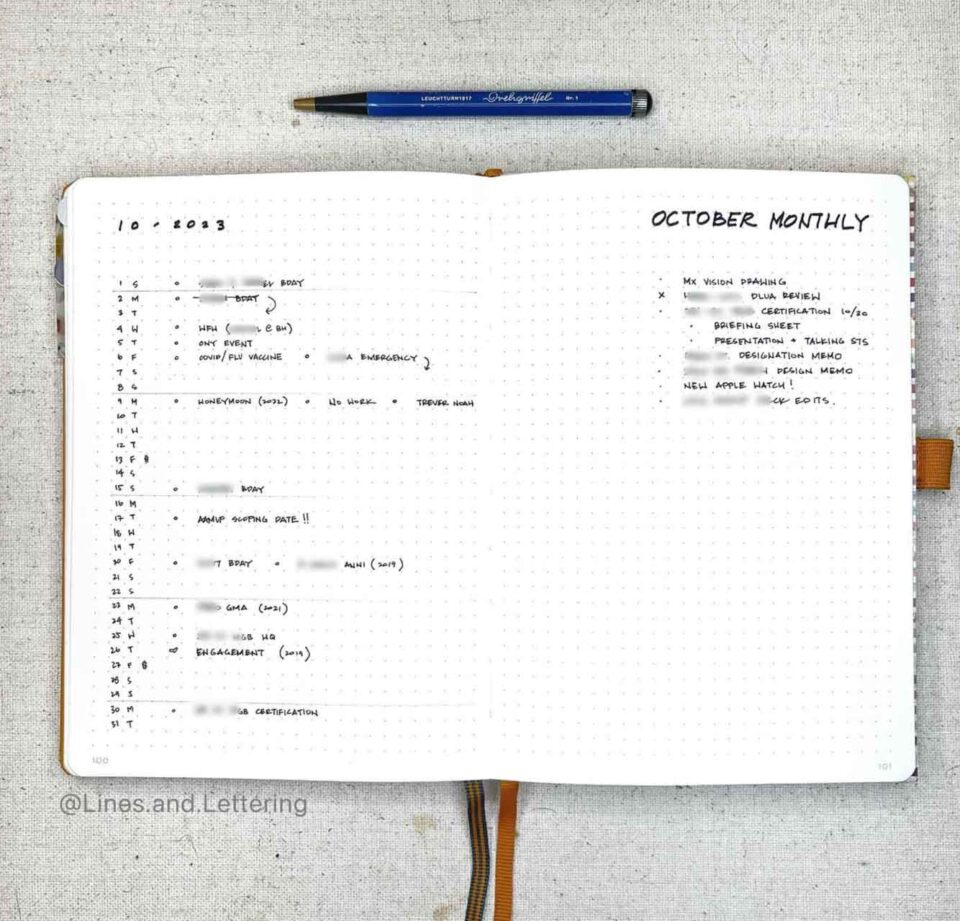 LEUCHTTURM1917 Drehgriffel Nr. 1
10 - 2023
1 S BDAY
2 M BDAY
3 T
4 W WFH ( @ BH)
5 T ONY EVENT
6 F COVID/FLU VACCINE EMERGENCY
7 S
8 S
9 M HONEYMOON (2022) NO WORK TREVER NOAH
10 T
11 W
12 T
13 F $
14 S
15 S BDAY
16 M
17 T SCOPING DATE!!
18 W
19 T
20 F BDAY ANNI (2019)
21 S
22 S
23 M GMA (2021)
24 T
25 W HQ
26 T ∞ ENGAGEMENT (2019)
27 F $
28 S
29 S
30 M CERTIFICATION
31 T
100
OCTOBER MONTHLY
· MX VISION DRAWING
x DLUA REVIEW
· CERTIFICATION 10/30
· BRIEFING SHEET
· PRESENTATION + TALKING STS
· DESIGNATION MEMO
· DESIGN MEMO
· NEW APPLE WATCH!
· EDITS.
101
@Lines.and.Lettering